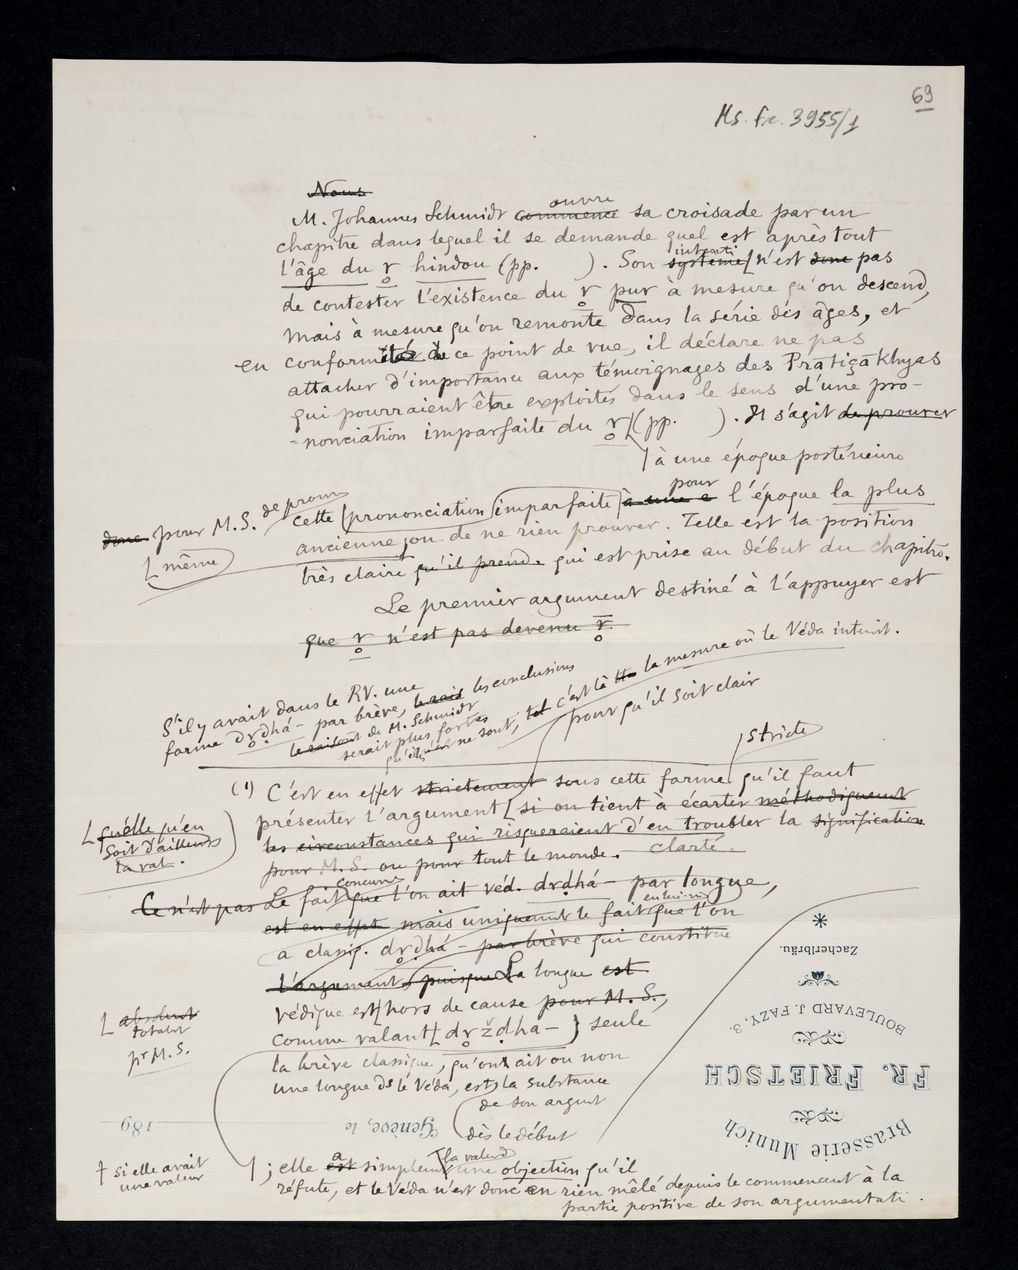 69
Ms. fr. 3955/1
Nous
ouvre
M. Johannes Schmidt commence sa croisade par un
chapitre dans lequel il se demande quel est après tout
intenti
l'âge du r̥ hindou (pp. ). Son système n'est donc pas
de contester l'existence du r̥ pur à mesure qu'on descend,
mais à mesure qu'on remonte dans la série des âges, et
en conformité de ce point de vue, il déclare ne pas
attacher d'importance aux témoignages des Pratiçakhyas
qui pourraient être exploités dans le sens d'une pro-
-nonciation imparfaite du r̥ (pp. ). Il s'agit de prouver
à une époque postérieure
pour
donc pour M.S. de prouv cette prononciation imparfaite à une e l'époque la plus
ancienne, ou de ne rien prouver. Telle est la position
même
très claire qu'il prend qui est prise au début du chapitre.
Le premier argument destiné à l'appuyer est
que r̥ n'est pas devenu r̥̄.
S'il y avait dans le RV. une
forme dr̥dhá- par brève, les conclusions
de M. Schmidt
serait plus fortes
qu'elles ne sont, tel c'est là la mesure où le Véda intervit.
pour qu'il soit clair
stricte
(1) C'est en effet strictement sous cette forme qu'il faut
présenter l'argument si on tient à écarter méthodiquement
les circonstances qui risqueraient d'en troubler la signification
pour M.S. ou pour tout le monde. clarté.
quelle qu'en
soit d'ailleurs
la val.
concurre
Ce n'est pas Le fait que l'on ait véd. dr̥dhá- par longue,
est en effet mais uniquement le fait que l'on
a classiq. dr̥dhá- par brève qui constitue
l'argument, puisque La longue est
védique est hors de cause pour M.S.,
absolut
totalnt
pr M.S.
comme valant dr̥ždha- } seule
la brève classique, qu'on ait ou non
une longue ds le Véda, est la substance
de son argumt
dès le début
† si elle avait
une valeur
; elle est a simplemt la valeur d'une objection qu'il
réfute, et le Véda n'est donc en rien mêlé depuis le commencnt à la
partie positive de son argumentati.
Brasserie Munich
FR. FRIETSCH
BOULEVARD J. FAZY, 3.
Zacherlbräu.
Genève, le 189